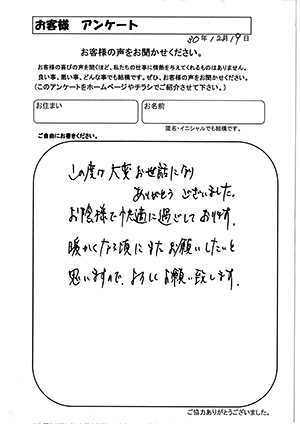 お客様 アンケート
30年12月19日
お客様の声をお聞かせください。
お客様の喜びの声を聞くほど、私たちの仕事に情熱を与えてくれるものはありません。
良い事、悪い事、どんな事でも結構です。ぜひ、お客様の声をお聞かせください。
(このアンケートをホームページやチラシでご紹介させて下さい。)
お住まい
お名前
匿名・イニシャルでも結構です。
ご自由にお書きください。
この度は大変お世話になり
ありがとうございました。
お陰様で快適に過ごしております。
暖かくなる頃にまたお願いしたいと
思いますので、よろしくお願い致します。
ご協力ありがとうございました。